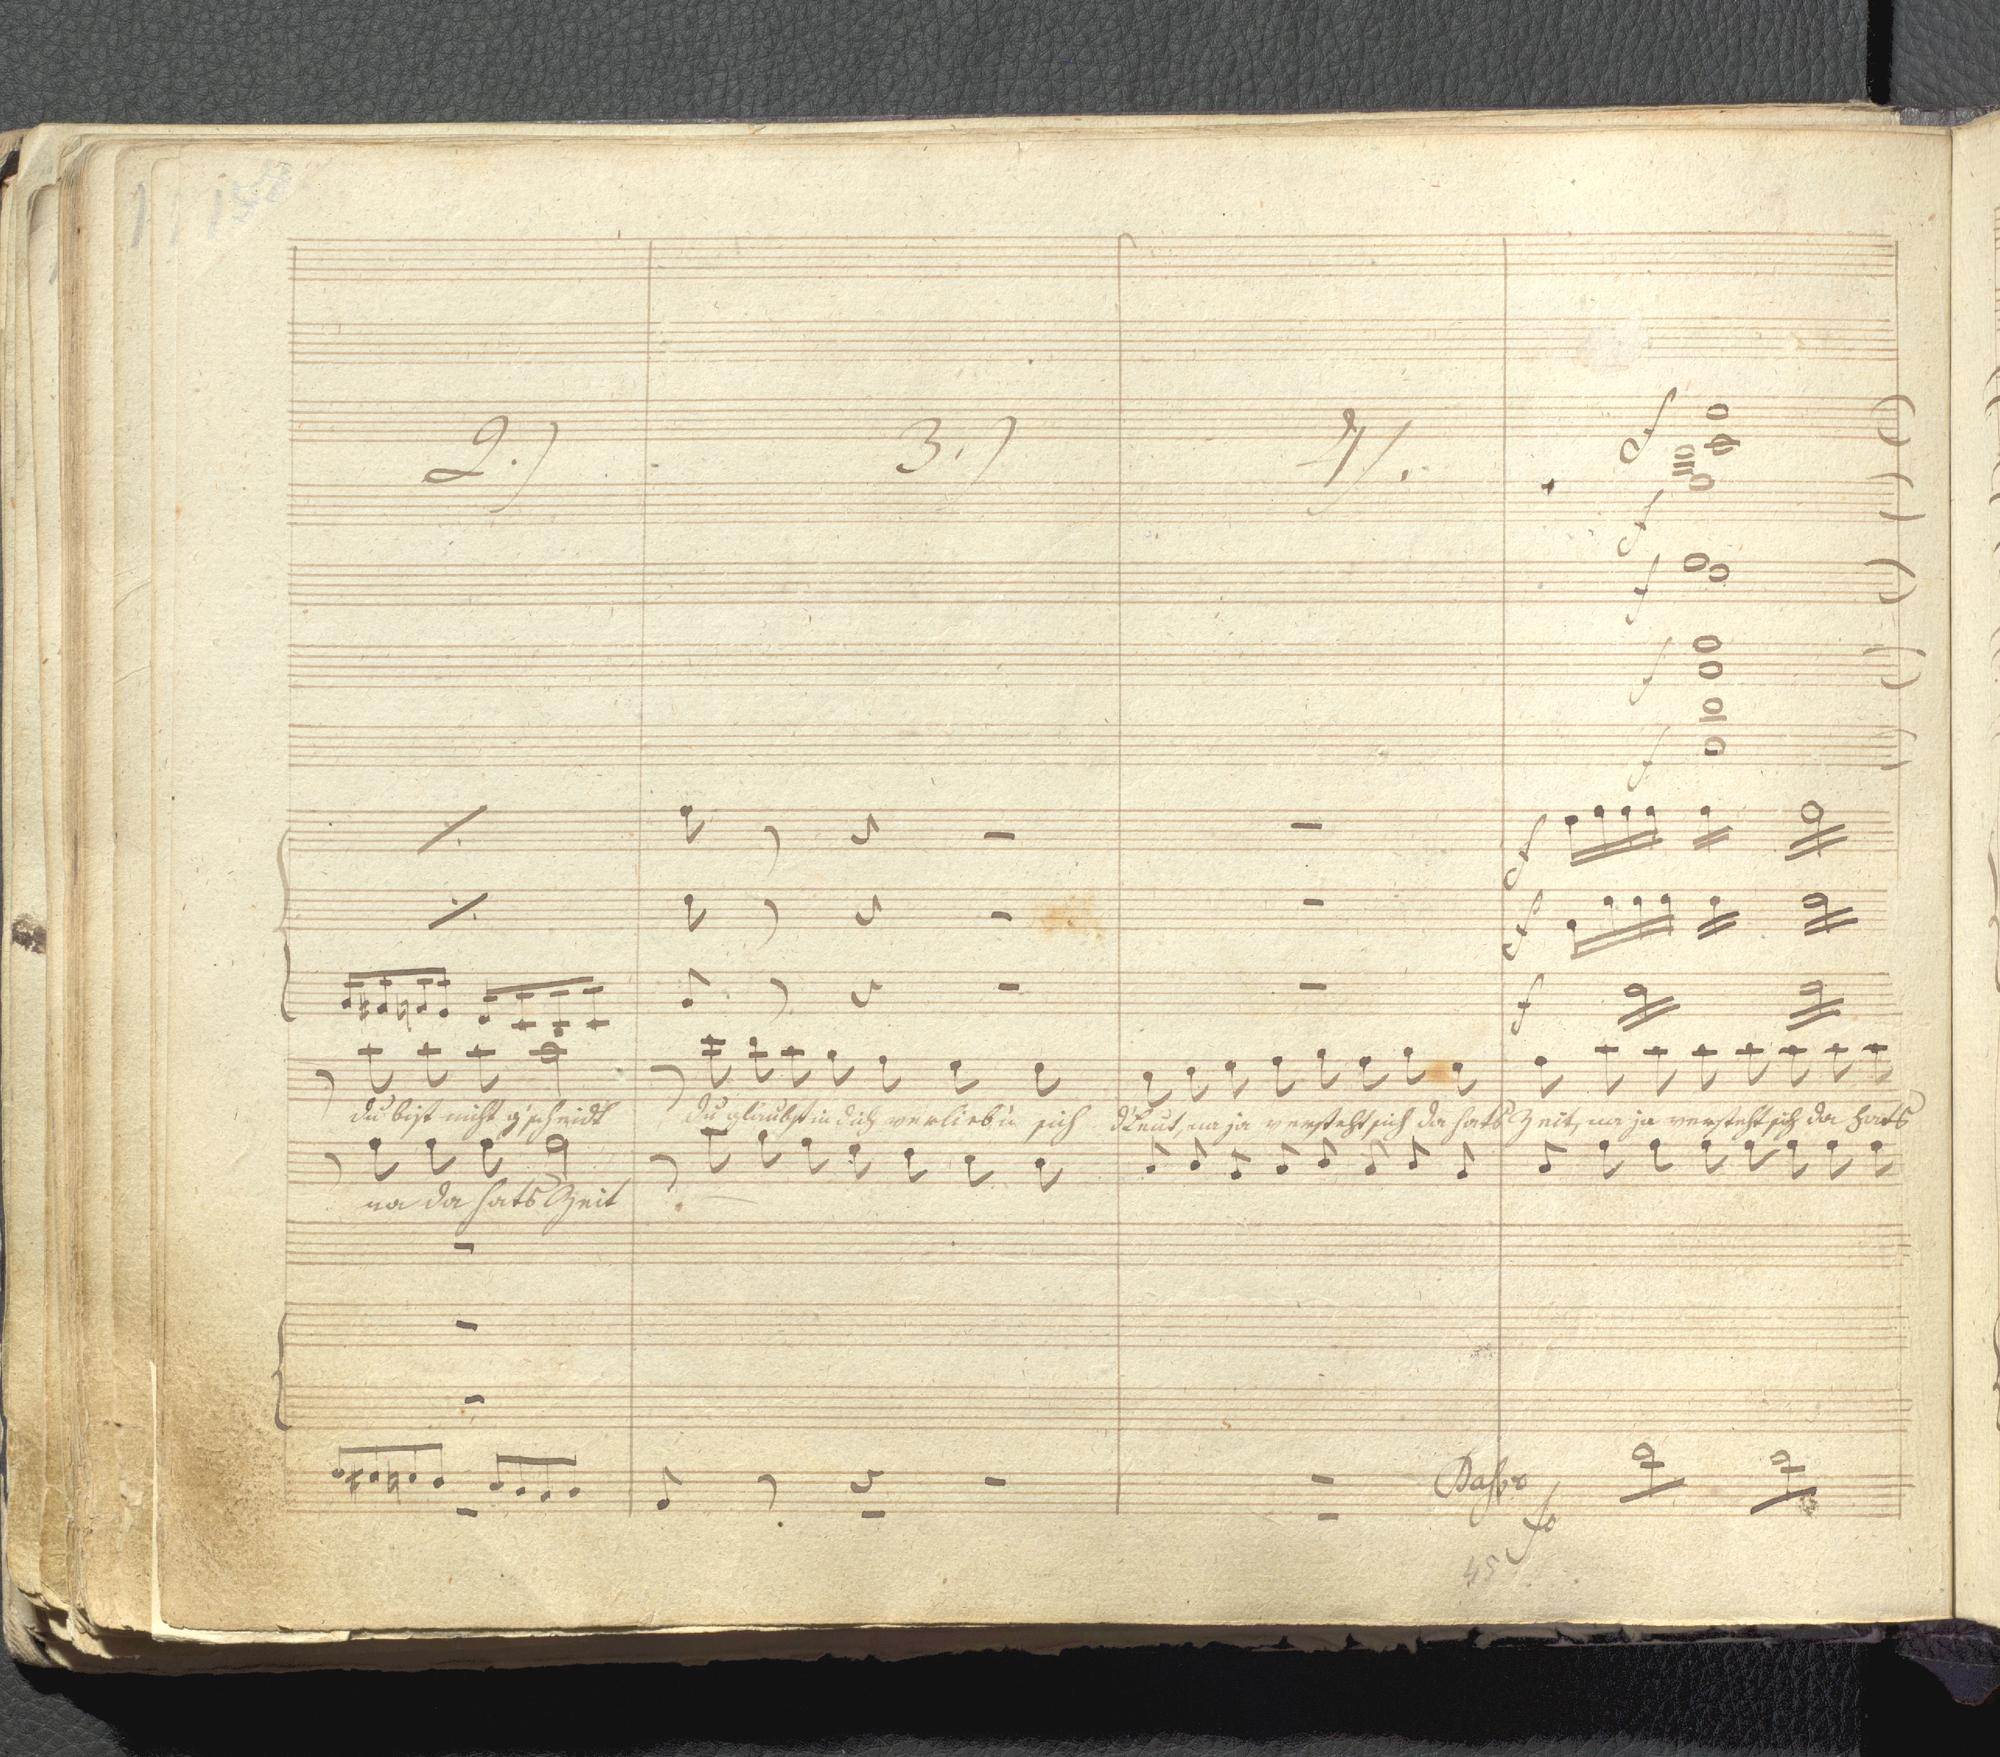 2.) 3.) 4).
f
f
f
f
f
f
f
f
du bist nicht g'scheidt du glaubst in dich verlieb'n sich d'Leut, na ja versteht sich da hats Zeit, na ja versteht sich da hats
na da hats Zeit
Basso
fo
45